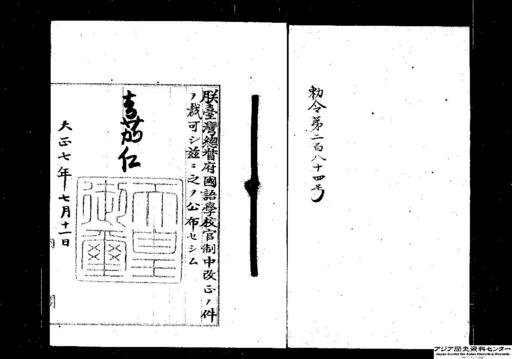 勅令第二百八十四号
朕臺灣總督府國語學校官制中改正ノ件
ヲ裁可シ茲ニ之ヲ公布セシム
嘉仁
天皇
御璽
大正七年七月十一日
内閣
アジア歴史資料センター
Japan Center for Asian Historical Records